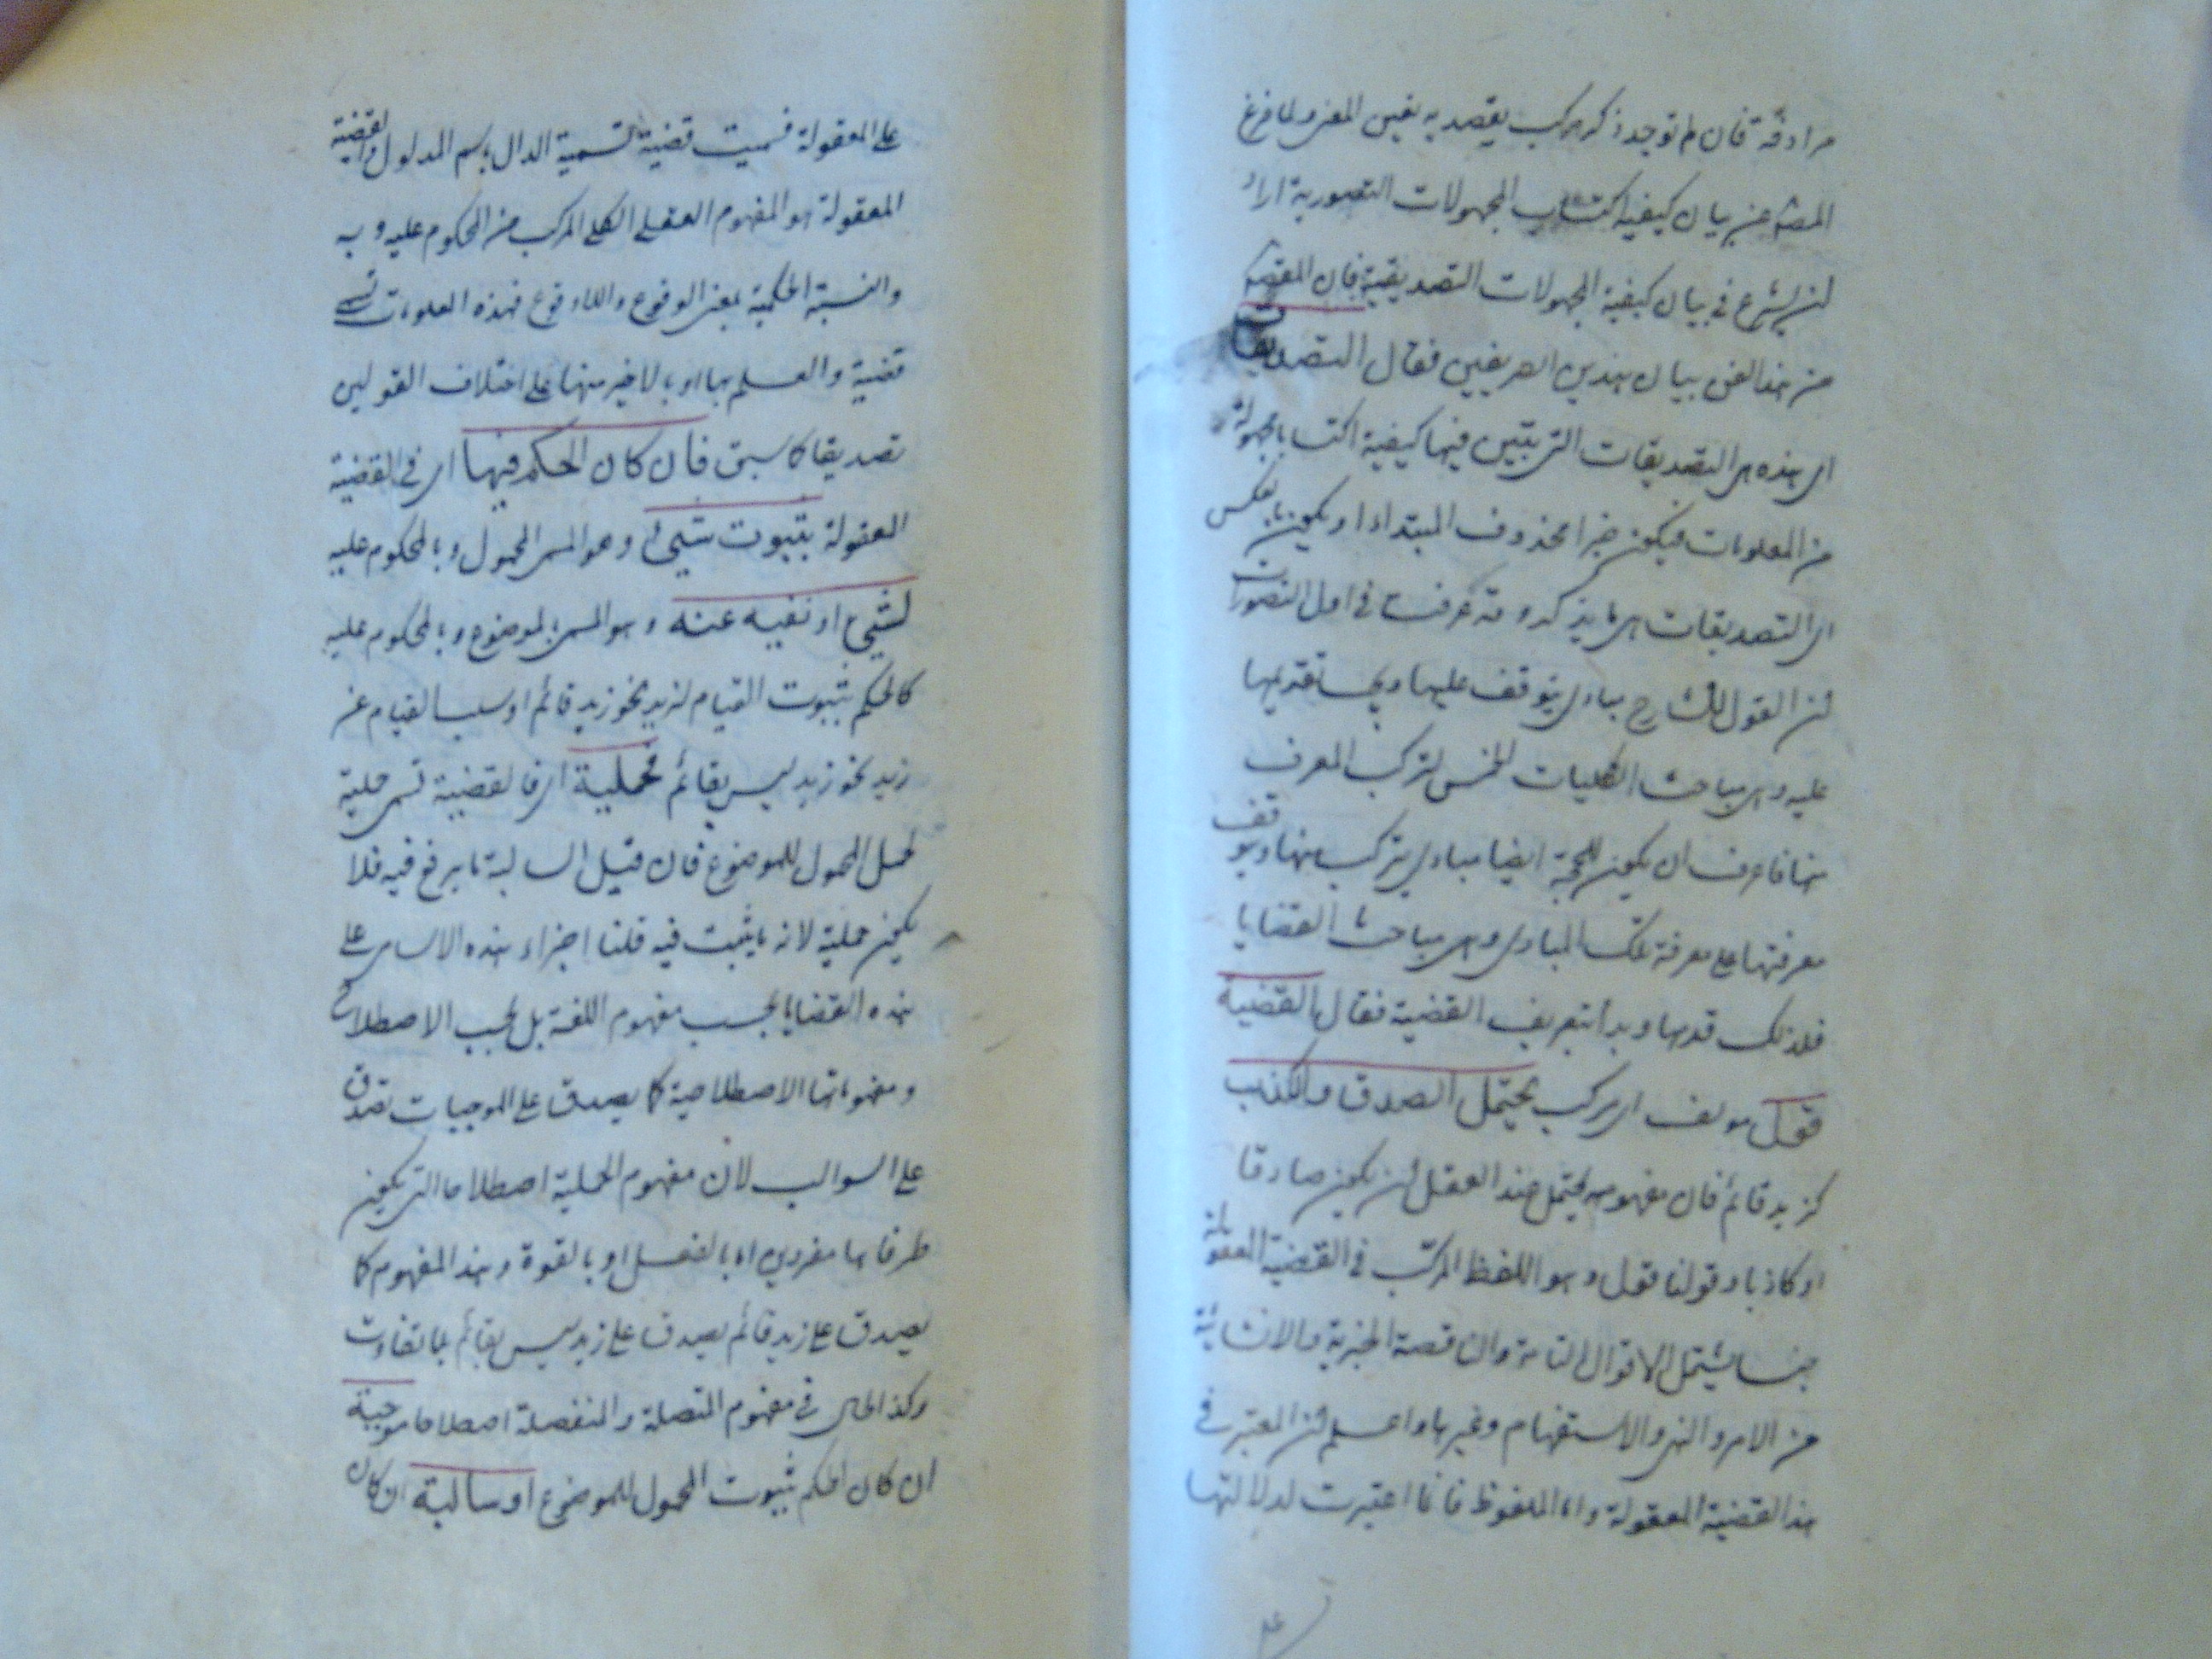 مرادفة فان لم توجد ذكر مركب يقصد به نفس المعنى ولما فرغ
المصـ عن بيان كيفية اكتساب المجهولات التصورية اراد
ان يشرع في بيان كيفية المجهولات التصديقية فان المقصد
من هذا الفن بيان هذين الطريقين فقال التصديقات
اى هذه هى التصديقات التى يتبين فيها كيفية اكتساب مجهولة
من المعلومات فيكون خبرا محذوف المبتداء او يكون بالعكس
اى التصديقات هى ما يذكر وقد عرفت فى اول التصورات
ان القول الشارح مبادى يتوقف عليها ويجب تقديمها
عليه وهى مباحث الكليات الخمس لتركب المعرف
منها فاعرف ان يكون للحجة ايضا مبادى يتركب منها ويتوقف
معرفتها على معرفة تلك المبادى وهى مباحث القضايا
فلذلك قدمها وبدأ بتعريف القضية فقال القضية
قول مؤلف اى مركب يحتمل الصدق والكذب
كزيد قائم فان مفهومه يحتمل عند العقل ان يكون صادقا
او كاذبا وقولنا قول وهو اللفظ المركب فى القضية المعقولة
جنس يشتمل الاقوال التامة والناقصة الخبرية والانشائية
من الامر والنهى والاستفهام وغيرها واعلم ان المعتبر فى
هذا القضية المعقولة واما الملفوظ فانما اعتبرت لدلالتها
على
على المعقولة فسميت قضية تسمية الدال باسم المدلول والقضية
المعقولة هو المفهوم العقلى الكلى المركب من المحكوم عليه وبه
والنسبة الحكمية بمعنى الوقوع واللاوقوع فهذه المعلومات تسمى
قضية والعلم بها او بالاخير منها على اختلاف القولين
تصديقا كما سبق فان كان الحكم فيها اى فى القضية
المعقولة بثبوت شيئ وهو المسمى المحمول وبالمحكوم عليه
لشيئ او نفيه عنه وهو المسمى بالموضوع وبالمحكوم عليه
كالحكم بثبوت القيام لزيد نحو زيد قائم او سلب القيام عن
زيد نحو زيد ليس بقائم فحملية اى فالقضية تسمى حملية
لحمل المحمول للموضوع فان قيل السالبة ما يرفع فيه فلا
يكون حملية لانه ما يثبت فيه قلنا اجراء هذه الاسامى على
هذه القضايا بحسب مفهوم اللغة بل بحسب الاصطلاح
ومفهوماتها الاصطلاحية كما يصدق على الموجبات تصدق
على السوالب لان مفهوم الحملية اصطلاحا التى يكون
طرفاها مفردين اما بالفعل او بالقوة وهذا المفهوم كما
يصدق على زيد قائم يصدق على زيد ليس بقائم بلا تفاوت
وكذا الحال فى مفهوم المتصلة والمنفصلة اصطلاحا موجبة
ان كان الحكم بثبوت المحمول للموضوع او سالبة ان كان